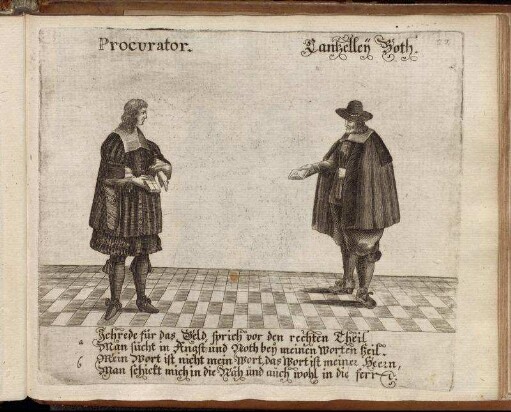 Procvrator.
Cantzelley Both.
a Ich rede für das Geld sprich vor den rechten Theil
Man sücht in Angst und Noth bey meinen Worten heil.
b Mein Wort ist nicht mein Wort, das Wort ist meiner Heern,
Man schickt mich in die Näh und auch wohl in die ferr